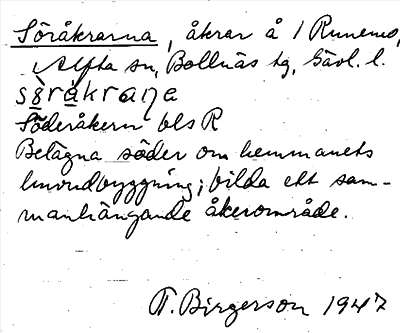 Söråkrarna, åkrar å / Runemo,
Alfta sn, Bollnäs tg, Gävl. l.
sö̀råkraṇa
Söderåkern bls R
Belägna söder om hemmanets
huvudbyggning; bilda ett sam-
manhängande åkerområde.
T. Birgerson 1947